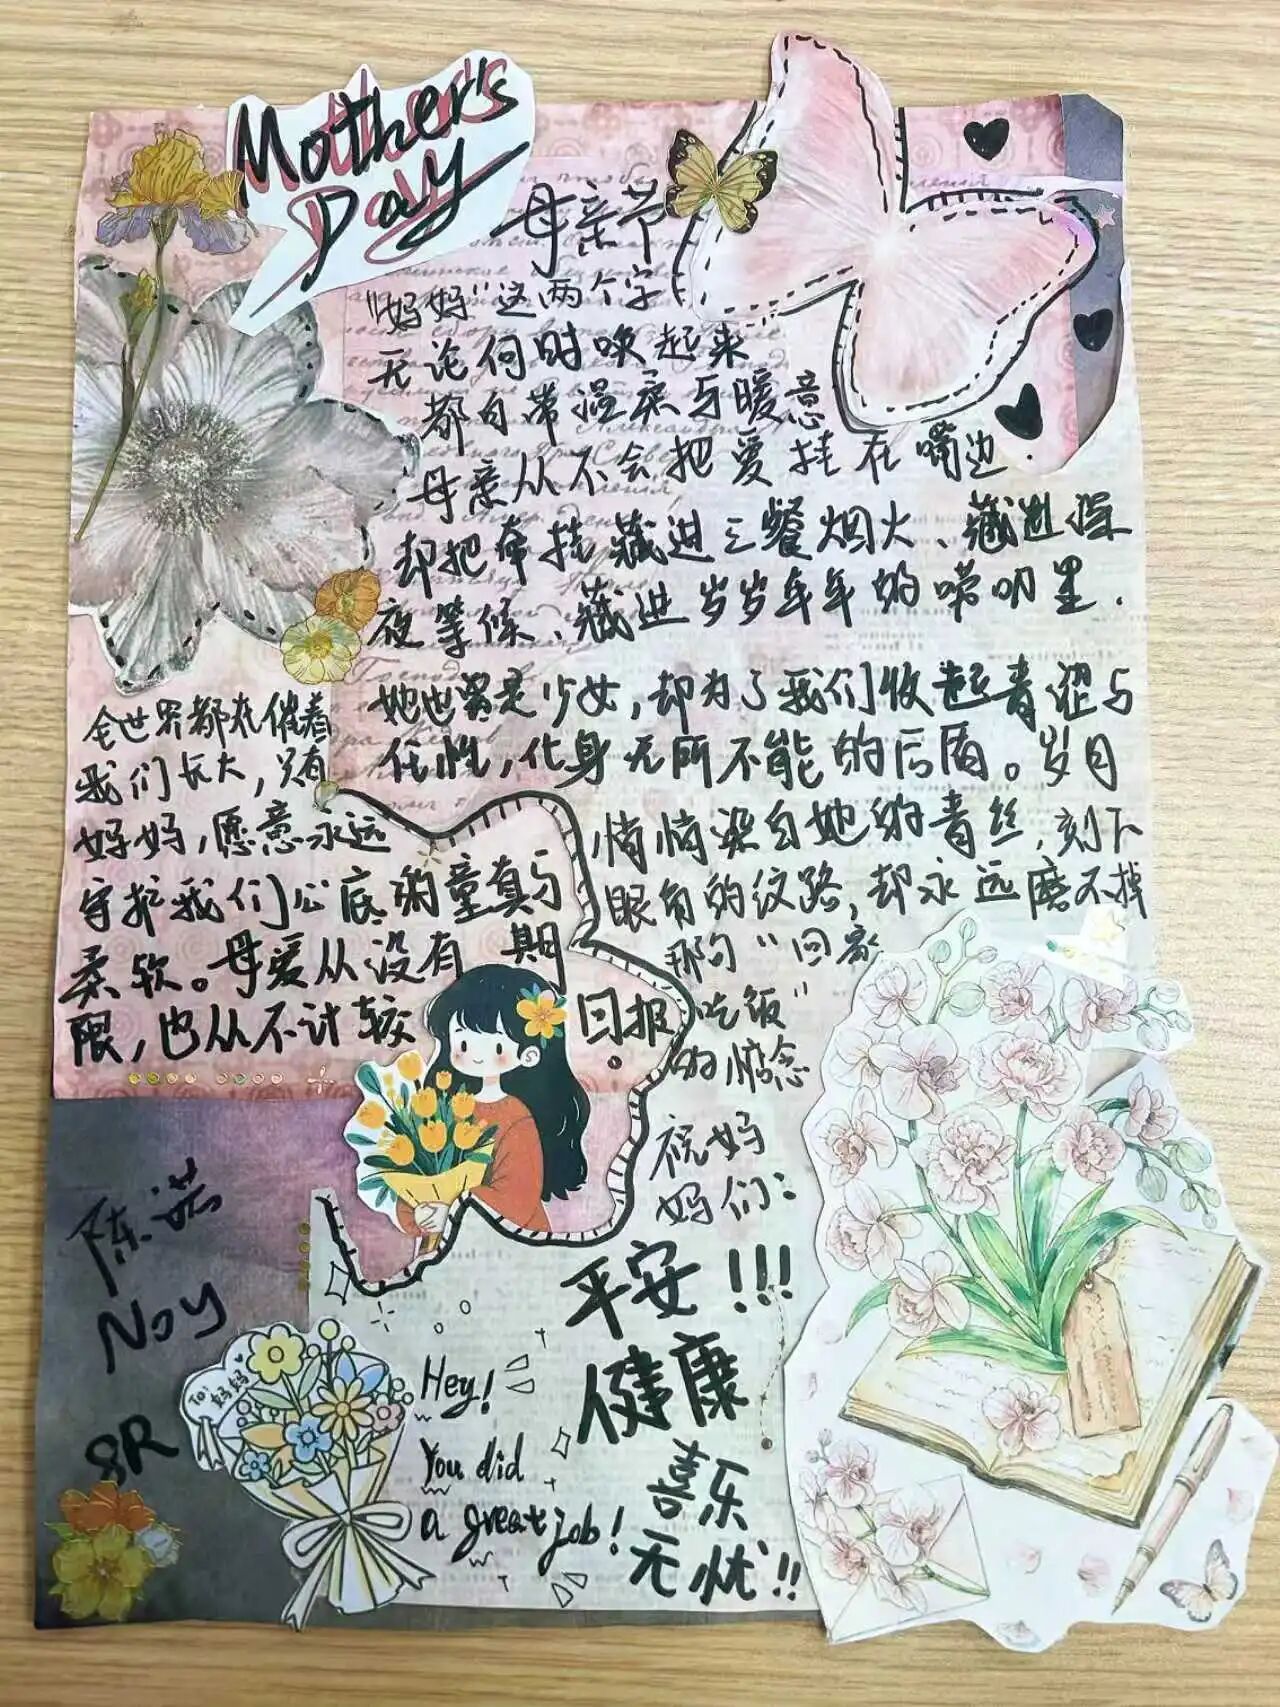 Mother's
Day
母亲节
"妈妈"这两个字
无论何时唤起来
都自带温柔与暖意
母亲从不会把爱挂在嘴边.
却把牵挂藏进三餐烟火、藏进深
夜等候、藏进岁岁年年的唠叨里.
她也曾是少女,却为了我们收起青涩与
任性,化身无所不能的后盾。岁月
悄悄染白她的青丝,刻下
眼角的纹路,却永远磨不掉
那句"回家
吃饭"
的惦念
全世界都在催着
我们长大,只有
妈妈,愿意永远
守护我们心底的童真与
柔软。母爱从没有期
限,也从不计较 回报.
祝妈
妈们:
平安!!!
健康
喜乐
无忧!!
陈诺
Noy
8R
To:
妈妈
Hey!
You did
a great job!